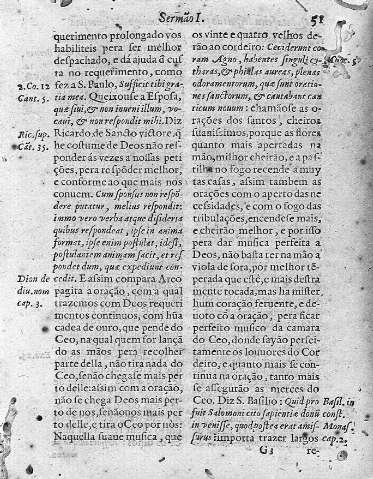 Sermão I. 51
querimento prolongado vos
habiliteis pera ser melhor
despachado, e dá ajuda d̃ cus
ta no requerimento, como
2.Co.12 sez a S. Paulo, Sufficit tibi gra-
Cant. 5. tia mea. Queixouse a Esposa,
quæsiui, & non inueni illum, vo-
caui, & non respondit mihi. Diz
Ric. sup. Ricardo de Sancto victore, q̃
Cãt. 35. he costume de Deos não res-
ponder ás vezes a nossas peti
ções, pera respõder melhor,
e conforme ao que mais nos
conuem. Cum sponsus non respõ-
dere putatur, melius respondit:
immo vero verba atque disideria
quibus respondeat, ipse in anima
format, ipse enim postulat, idest,
postulantem animam facit, et res-
pondet dum, quæ expediunt con-
Dion de cedit. E assim compara Areo
diu. nom pagita a oração, com a qual
cap. 3. trazemos com Deos requeri
mentos continuos, com hũa
cadea de ouro, que pende do
Ceo, na qual quem for lançã
do as mãos pera recolher
parte della, não tira nada do
Ceo, senão chegase mais per
to delle: assim com a oração,
não se chega Deos mais per-
to de nos, senão nos mais per
to delle, e tira o Ceo por nós:
Naquella suaue musica, que
os vinte e quatro velhos de-
rão ao cordeiro: Ceciderunt co-
ram Agno, habentes singuli cy-
tharas, & phialas aureas, plenas
odoramentorum, quæ sunt oratio-
nes sanctorum, & cantabant can
ticum nouum: chamãose as o-
rações dos santos, cheiros
suauissimos, porque as flores
quanto mais apertadas na
mão, milhor cheirão, e a pas-
tilha no fogo recende a muy
tas casas, assim tambem as
orações com o aperto das ne
cessidades, e com o fogo das
tribulações, encendese mais,
e cheirão melhor, e por isso
pera dar musica perfeita a
Deos, não basta ter na mão a
viola de sora, por melhor tẽ-
perada que este, e mais destra
mente tocada, mas ha mister
hum coração feruente, e de-
uoto cõ a oração, pera ficar
perfeito musico da camara
do Ceo, donde sayão persei-
tamente os louuores do Cor
deiro, e quanto mais se con-
tinua na oração, tanto mais
se assegurão as merces do
Ceo. Diz S. Basilio: Quid pro Basil. in
fuit Salomoni cito sapientiæ donũ const.
in venisse, quod postea erat amis- Monas.
surus? importa trazer largos cap. 2.
G 3 re-